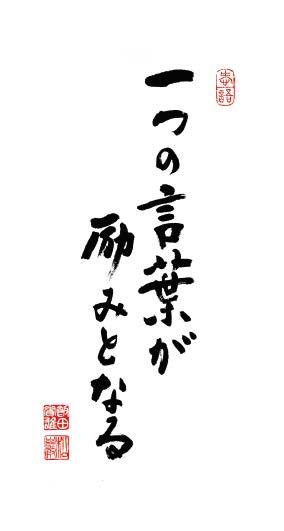 一つの言葉が
励みとなる